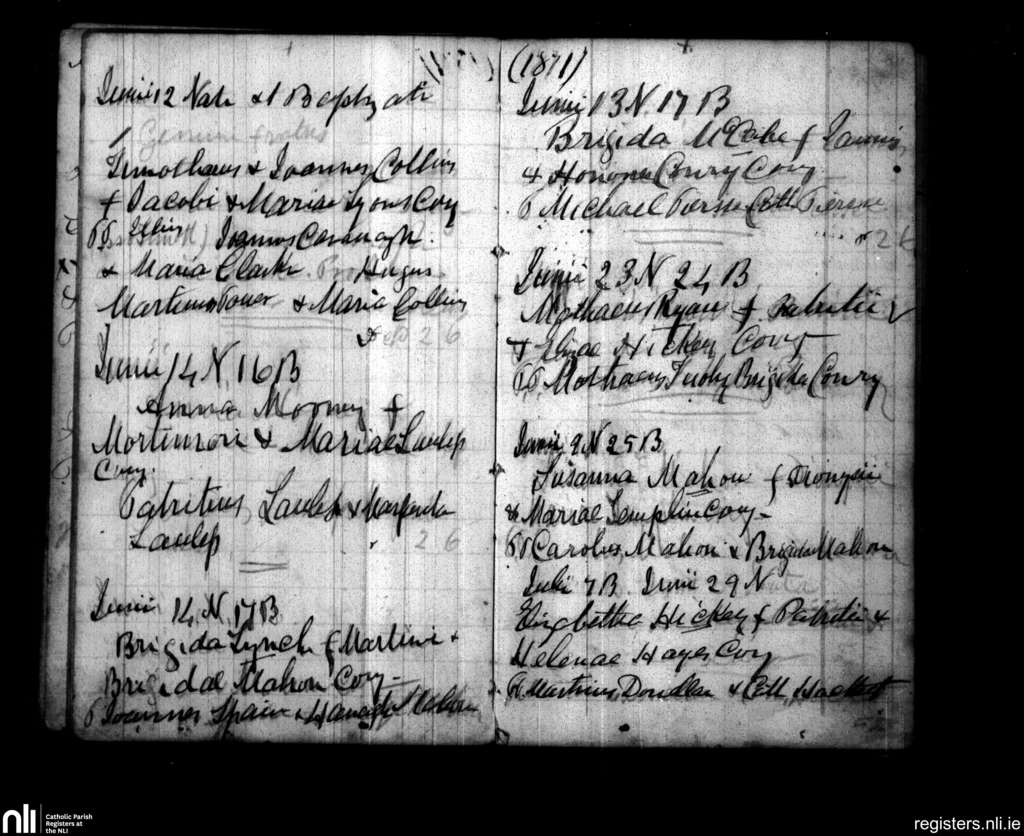 Junii 12 Nati & 1 Baptizati
Gemini fratres
Timotheus & Joannes Collins
f Jacobi & Mariae Lyons Conj
Joannes Cavanagh
& Maria Clarke Hugus
Martinus Power & Maria Collins
2 6
Junii 14 N. 16 B
Anna Mooney f
Mortimori & Mariae Lawlep
Conj.
Patritius Lawlep & Margarita
Lawlep
2 6
Junii 14 N. 17 B
Brigida Lynch f Martini &
Brigidae Mahon Conj
Joannes Spain & Mahon
(1871)
Junii 13 N. 17 B
Brigida McCabe f
& Honorae Conry Conj
Michael Pierse Cath Pierse
2 6
Junii 23 N 24 B
Mathaeus Ryan f Patritii
& Elizae Hickey Conj
PP. Mathaeus Tuohy Brigida Conry
Junii 9 N 25 B
Susanna Mahon f Dionysii
& Mariae Templin Conj
PP Carolus Mahon & Brigida Mahon
Julii 7 B. Junii 29 N
Elizabetha Hickey f Patritii &
Helenae Hayes Conj
Martinus Donellan & Cath Hackett
nli
Catholic Parish
Registers at
the NLI
registers.nli.ie